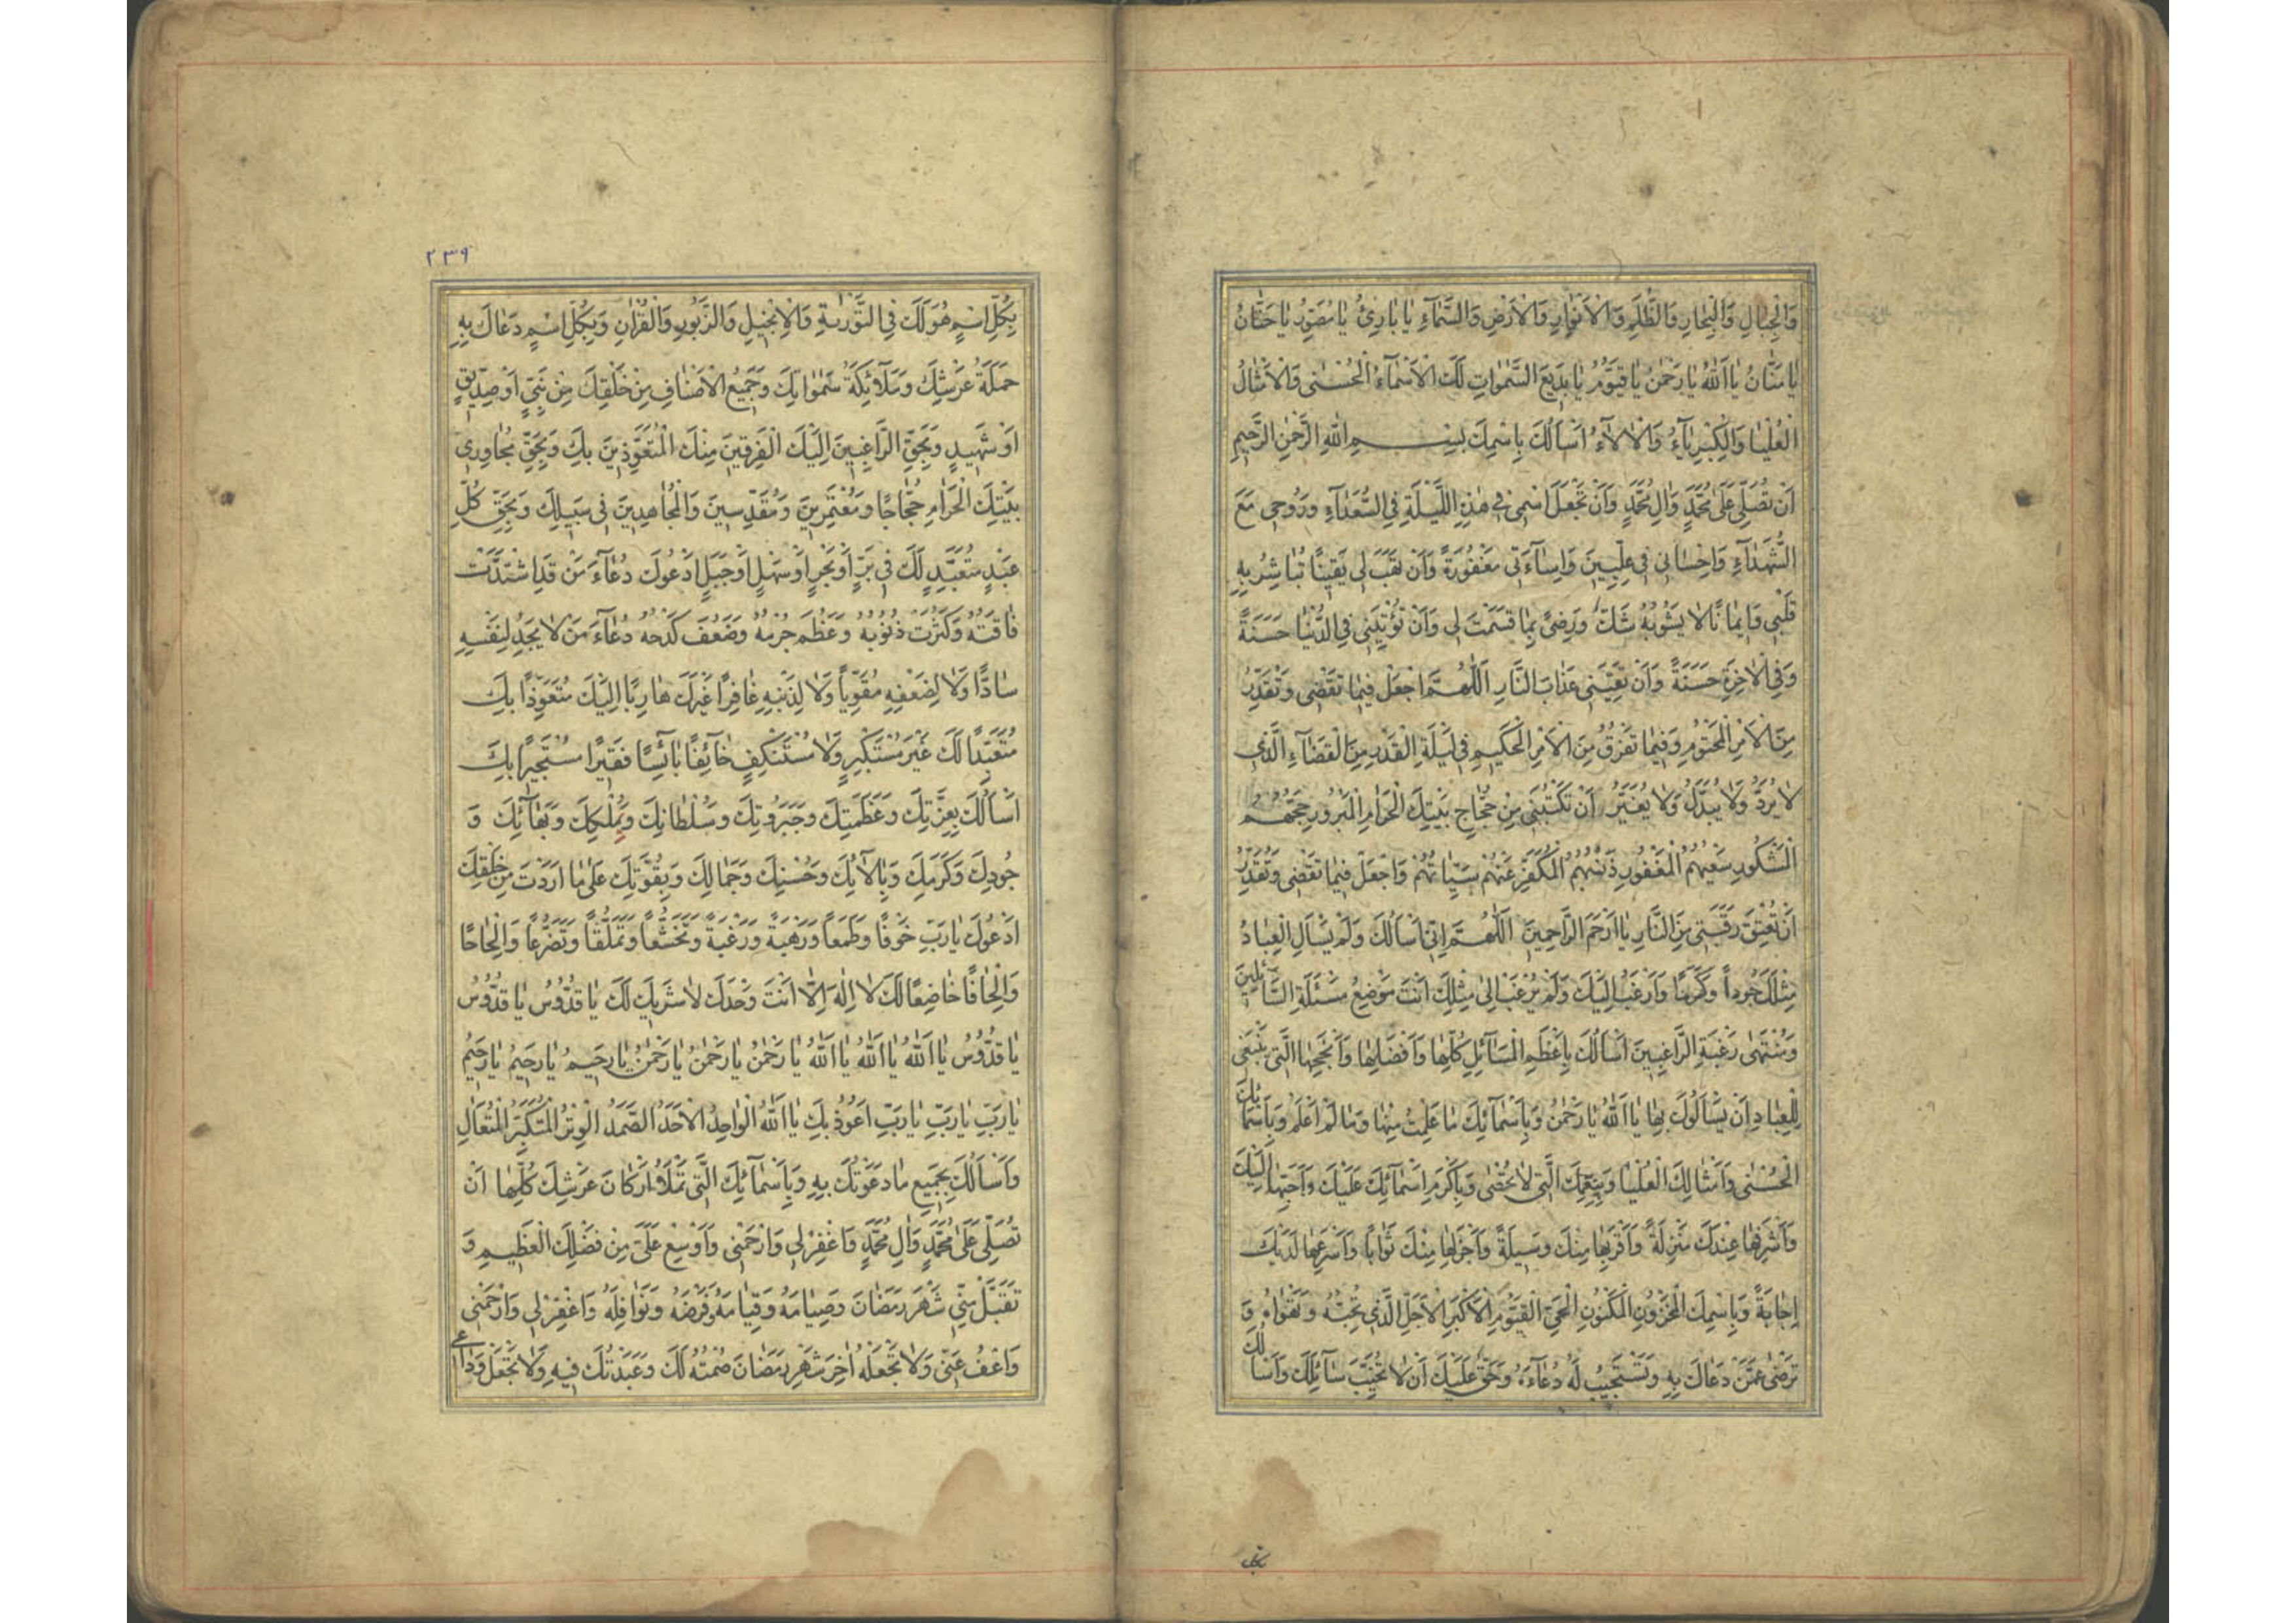 وَالْجِبَالِ وَالْبِحَارِ وَالظُّلَمِ وَالْاَنْوَارِ وَالْاَرْضِ وَالسَّمَآءِ يَا بَارِئُ يَا مُصَوِّرُ يَا حَنَّانُ
يَا مَنَّانُ يَا اَللّٰهُ يَا رَحْمٰنُ يَا قَيُّوْمُ يَا بَدِيعَ السَّمٰوَاتِ لَكَ الْاَسْمَآءُ الْحُسْنٰى وَالْاَمْثَالُ
الْعُلْيَا وَالْكِبْرِيَآءُ وَالْاٰلَآءُ اَسْاَلُكَ بِاسْمِكَ بِسْمِ اللّٰهِ الرَّحْمٰنِ الرَّحِيمِ
اَنْ تُصَلِّيَ عَلٰى مُحَمَّدٍ وَاٰلِ مُحَمَّدٍ وَاَنْ تَجْعَلَ اسْمِي فِي هٰذِهِ اللَّيْلَةِ فِي السُّعَدَآءِ وَرُوحِي مَعَ
الشُّهَدَآءِ وَاِحْسَانِي فِي عِلِّيِّينَ وَاِسَآءَتِي مَغْفُورَةً وَاَنْ تَهَبَ لِي يَقِينًا تُبَاشِرُ بِهِ
قَلْبِي وَاِيمَانًا لَا يَشُوبُهُ شَكٌّ وَرِضًى بِمَا قَسَمْتَ لِي وَاَنْ تُؤْتِيَنِي فِي الدُّنْيَا حَسَنَةً
وَفِي الْاٰخِرَةِ حَسَنَةً وَاَنْ تَقِيَنِي عَذَابَ النَّارِ اَللّٰهُمَّ اجْعَلْ فِيمَا تَقْضِي وَتُقَدِّرُ
مِنَ الْاَمْرِ الْمَحْتُومِ وَفِيمَا تَفْرُقُ مِنَ الْاَمْرِ الْحَكِيمِ فِي لَيْلَةِ الْقَدْرِ مِنَ الْقَضَآءِ الَّذِي
لَا يُرَدُّ وَلَا يُبَدَّلُ وَلَا يُغَيَّرُ اَنْ تَكْتُبَنِي مِنْ حُجَّاجِ بَيْتِكَ الْحَرَامِ الْمَبْرُورِ حَجُّهُمْ
الْمَشْكُورِ سَعْيُهُمْ الْمَغْفُورِ ذَنْبُهُمْ الْمُكَفَّرِ عَنْهُمْ سَيِّئَاتُهُمْ وَاجْعَلْ فِيمَا تَقْضِي وَتُقَدِّرُ
اَنْ تُعْتِقَ رَقَبَتِي مِنَ النَّارِ يَا اَرْحَمَ الرَّاحِمِينَ اَللّٰهُمَّ اِنِّي اَسْاَلُكَ وَلَمْ يَسْاَلِ الْعِبَادُ
مِثْلَكَ جُودًا وَكَرَمًا وَاَرْغَبُ اِلَيْكَ وَلَمْ يُرْغَبْ اِلٰى مِثْلِكَ اَنْتَ مَوْضِعُ مَسْئَلَةِ السَّآئِلِينَ
وَمُنْتَهٰى رَغْبَةِ الرَّاغِبِينَ اَسْاَلُكَ بِاَعْظَمِ الْمَسَآئِلِ كُلِّهَا وَاَفْضَلِهَا وَاَنْجَحِهَا الَّتِي يَنْبَغِي
لِلْعِبَادِ اَنْ يَسْاَلُوكَ بِهَا يَا اَللّٰهُ يَا رَحْمٰنُ وَبِاَسْمَآئِكَ مَا عَلِمْتُ مِنْهَا وَمَا لَمْ اَعْلَمْ وَبِاَسْمَآئِكَ
الْحُسْنٰى وَاَمْثَالِكَ الْعُلْيَا وَبِنِعَمِكَ الَّتِي لَا تُحْصٰى وَبِاَكْرَمِ اَسْمَآئِكَ عَلَيْكَ وَاَحَبِّهَا اِلَيْكَ
وَاَشْرَفِهَا عِنْدَكَ مَنْزِلَةً وَاَقْرَبِهَا مِنْكَ وَسِيلَةً وَاَجْزَلِهَا مِنْكَ ثَوَابًا وَاَسْرَعِهَا لَدَيْكَ
اِجَابَةً وَبِاسْمِكَ الْمَخْزُونِ الْمَكْنُونِ الْحَيِّ الْقَيُّومِ الْاَكْبَرِ الْاَجَلِّ الَّذِي تُحِبُّهُ وَتَهْوَاهُ وَ
تَرْضٰى عَمَّنْ دَعَاكَ بِهِ وَتَسْتَجِيبُ لَهُ دُعَآءَهُ وَحَقٌّ عَلَيْكَ اَنْ لَا تُخَيِّبَ سَآئِلَكَ وَاَسْاَلُكَ
بكل
٢٣٩
بِكُلِّ اسْمٍ هُوَ لَكَ فِي التَّوْرٰيةِ وَالْاِنْجِيلِ وَالزَّبُورِ وَالْقُرْاٰنِ وَبِكُلِّ اسْمٍ دَعَاكَ بِهِ
حَمَلَةُ عَرْشِكَ وَمَلٰٓائِكَةُ سَمٰوَاتِكَ وَجَمِيعُ الْاَصْنَافِ مِنْ خَلْقِكَ مِنْ نَبِيٍّ اَوْ صِدِّيقٍ
اَوْ شَهِيدٍ وَبِحَقِّ الرَّاغِبِينَ اِلَيْكَ الْفَرِقِينَ مِنْكَ الْمُتَعَوِّذِينَ بِكَ وَبِحَقِّ مُجَاوِرِي
بَيْتِكَ الْحَرَامِ حُجَّاجًا وَمُعْتَمِرِينَ وَمُقَدِّسِينَ وَالْمُجَاهِدِينَ فِي سَبِيلِكَ وَبِحَقِّ كُلِّ
عَبْدٍ مُتَعَبِّدٍ لَكَ فِي بَرٍّ اَوْ بَحْرٍ اَوْ سَهْلٍ اَوْ جَبَلٍ اَدْعُوكَ دُعَآءَ مَنْ قَدِ اشْتَدَّتْ
فَاقَتُهُ وَكَثُرَتْ ذُنُوبُهُ وَعَظُمَ جُرْمُهُ وَضَعُفَ كَدْحُهُ دُعَآءَ مَنْ لَا يَجِدُ لِنَفْسِهِ
سَادًّا وَلَا لِضَعْفِهِ مُقَوِّيًا وَلَا لِذَنْبِهِ غَافِرًا غَيْرَكَ هَارِبًا اِلَيْكَ مُتَعَوِّذًا بِكَ
مُتَعَبِّدًا لَكَ غَيْرَ مُسْتَكْبِرٍ وَلَا مُسْتَنْكِفٍ خَآئِفًا بَآئِسًا فَقِيرًا مُسْتَجِيرًا بِكَ
اَسْاَلُكَ بِعِزَّتِكَ وَعَظَمَتِكَ وَجَبَرُوتِكَ وَسُلْطَانِكَ وَبِمُلْكِكَ وَبَهَآئِكَ وَ
جُودِكَ وَكَرَمِكَ وَبِاٰلَآئِكَ وَحُسْنِكَ وَجَمَالِكَ وَبِقُوَّتِكَ عَلٰى مَا اَرَدْتَ مِنْ خَلْقِكَ
اَدْعُوكَ يَا رَبِّ خَوْفًا وَطَمَعًا وَرَهْبَةً وَرَغْبَةً وَتَخَشُّعًا وَتَمَلُّقًا وَتَضَرُّعًا وَاِلْحَاحًا
وَاِلْحَافًا خَاضِعًا لَكَ لَا اِلٰهَ اِلَّا اَنْتَ وَحْدَكَ لَا شَرِيكَ لَكَ يَا قُدُّوسُ يَا قُدُّوسُ
يَا قُدُّوسُ يَا اَللّٰهُ يَا اَللّٰهُ يَا اَللّٰهُ يَا رَحْمٰنُ يَا رَحْمٰنُ يَا رَحْمٰنُ يَا رَحِيمُ يَا رَحِيمُ يَا رَحِيمُ
يَا رَبِّ يَا رَبِّ يَا رَبِّ اَعُوذُ بِكَ يَا اَللّٰهُ الْوَاحِدُ الْاَحَدُ الصَّمَدُ الْوِتْرُ الْمُتَكَبِّرُ الْمُتَعَالِ
وَاَسْاَلُكَ بِجَمِيعِ مَا دَعَوْتُكَ بِهِ وَبِاَسْمَآئِكَ الَّتِي تَمْلَأُ اَرْكَانَ عَرْشِكَ كُلِّهَا اَنْ
تُصَلِّيَ عَلٰى مُحَمَّدٍ وَاٰلِ مُحَمَّدٍ وَاغْفِرْ لِي وَارْحَمْنِي وَاَوْسِعْ عَلَيَّ مِنْ فَضْلِكَ الْعَظِيمِ وَ
تَقَبَّلْ مِنِّي شَهْرَ رَمَضَانَ وَصِيَامَهُ وَقِيَامَهُ وَفَرْضَهُ وَنَوَافِلَهُ وَاغْفِرْ لِي وَارْحَمْنِي
وَاعْفُ عَنِّي وَلَا تَجْعَلْهُ اٰخِرَ شَهْرِ رَمَضَانَ صُمْتُهُ لَكَ وَعَبَدْتُكَ فِيهِ وَلَا تَجْعَلْ وَدَاعِي